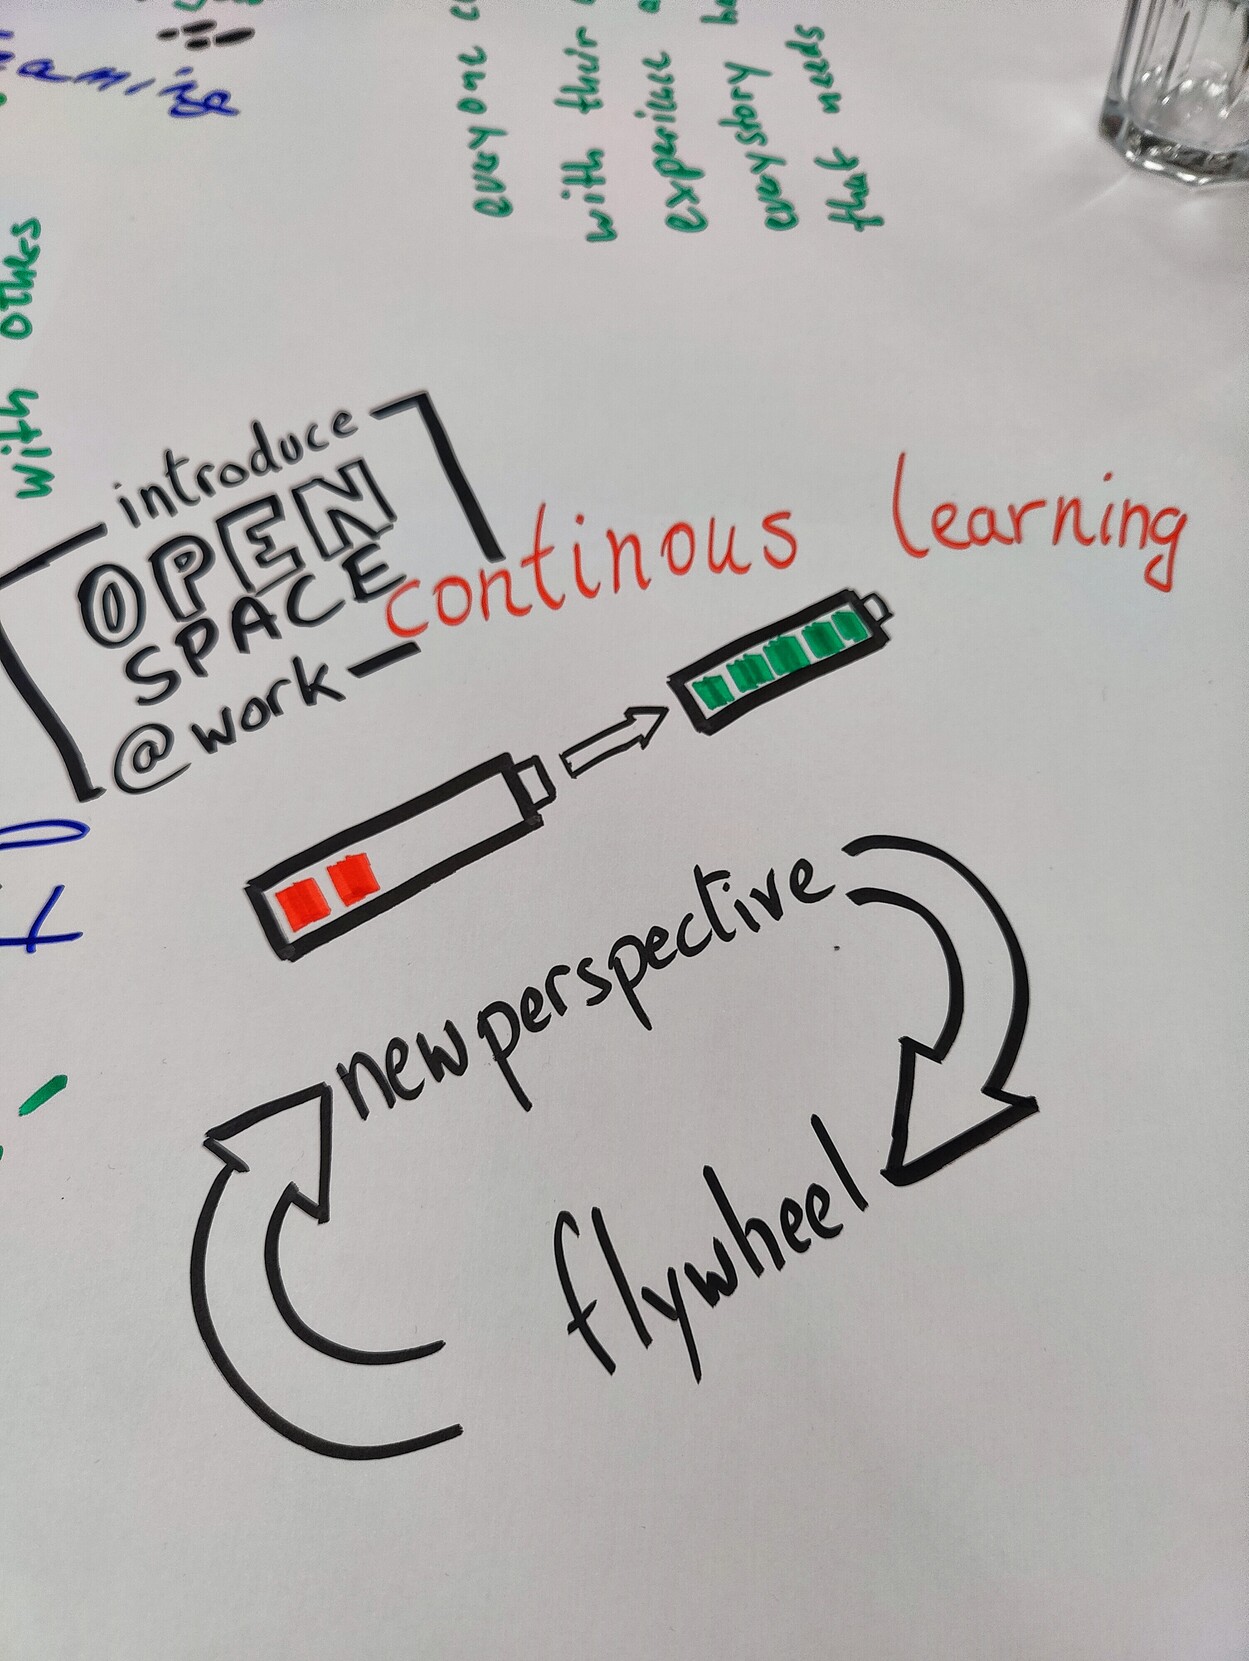 everyone
with their
experience
every story
that needs
with others
introduce
OPEN
SPACE
@work
continous learning
new perspective
flywheel